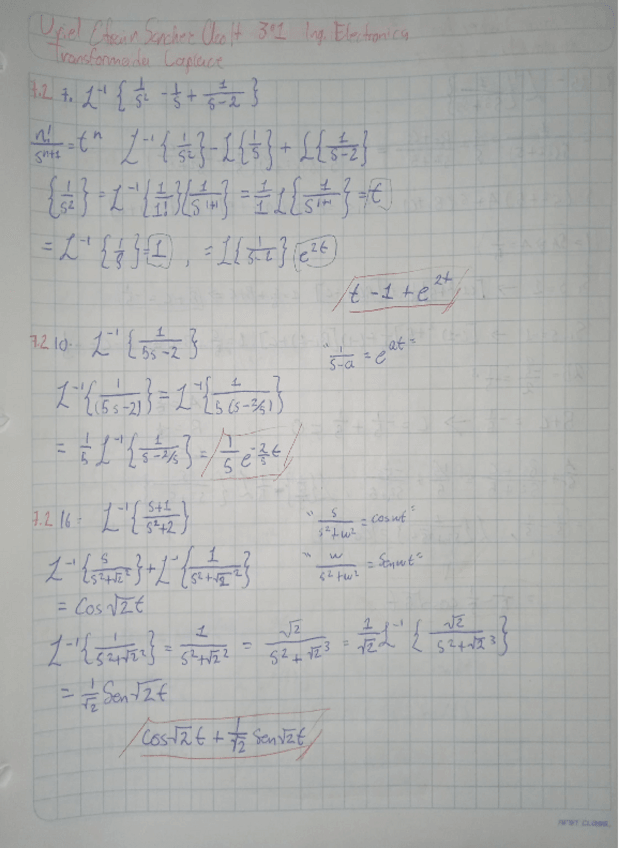 Uriel Sanchez 301 Ing. Electronica
Transformada Laplace
7.2 7. L⁻¹ { 1/s² - 1/s + 1/(s-2) }
n!/sⁿ⁺¹ = tⁿ L⁻¹ { 1/s² } - L { 1/s } + L { 1/(s-2) }
{ 1/s² } = L⁻¹ { 1/1! } { 1/s¹⁺¹ } = 1/1 L { 1/s¹⁺¹ } = t
= L⁻¹ { 1/s } = 1 , = L { 1/(s-2) } e²ᵗ
t - 1 + e²ᵗ
7.2 10. L⁻¹ { 1/(5s-2) } " 1/(s-a) = eᵃᵗ "
L⁻¹ { 1/(5s-2) } = L⁻¹ { 1/(5(s-2/5)) }
= 1/5 L⁻¹ { 1/(s-2/5) } = 1/5 e^(-2/5 t)
7.2 16. L⁻¹ { (s+1)/(s²+2) } " s/(s²+w²) = coswt "
L⁻¹ { s/(s²+√2²) } + L⁻¹ { 1/(s²+√2²) } " w/(s²+w²) = Senwt "
= Cos√2t
L⁻¹ { 1/(s²+√2²) } = 1/(s²+√2²) = √2/(s²+√2³) = 1/√2 L⁻¹ { √2/(s²+√2³) }
= 1/√2 Sen√2t
Cos√2t + 1/√2 Sen√2t
FIRST CLASS